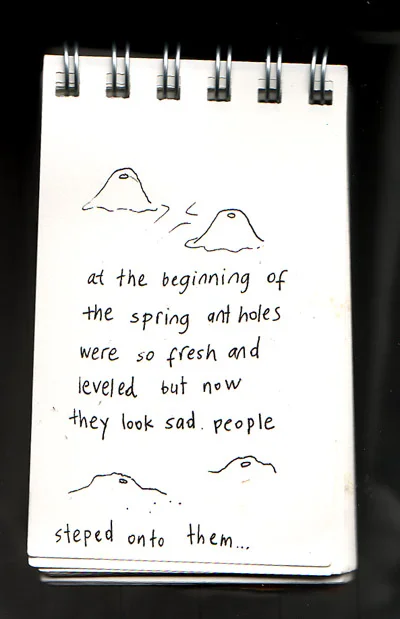 at the beginning of
the spring ant holes
were so fresh and
leveled but now
they look sad. people
steped onto them...